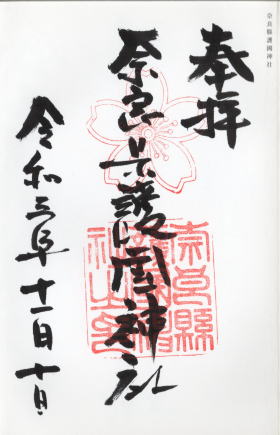 奈良縣護國神社
奉拝
奈良県護国神社
令和三年十一月十日
奈良縣護國神社之印